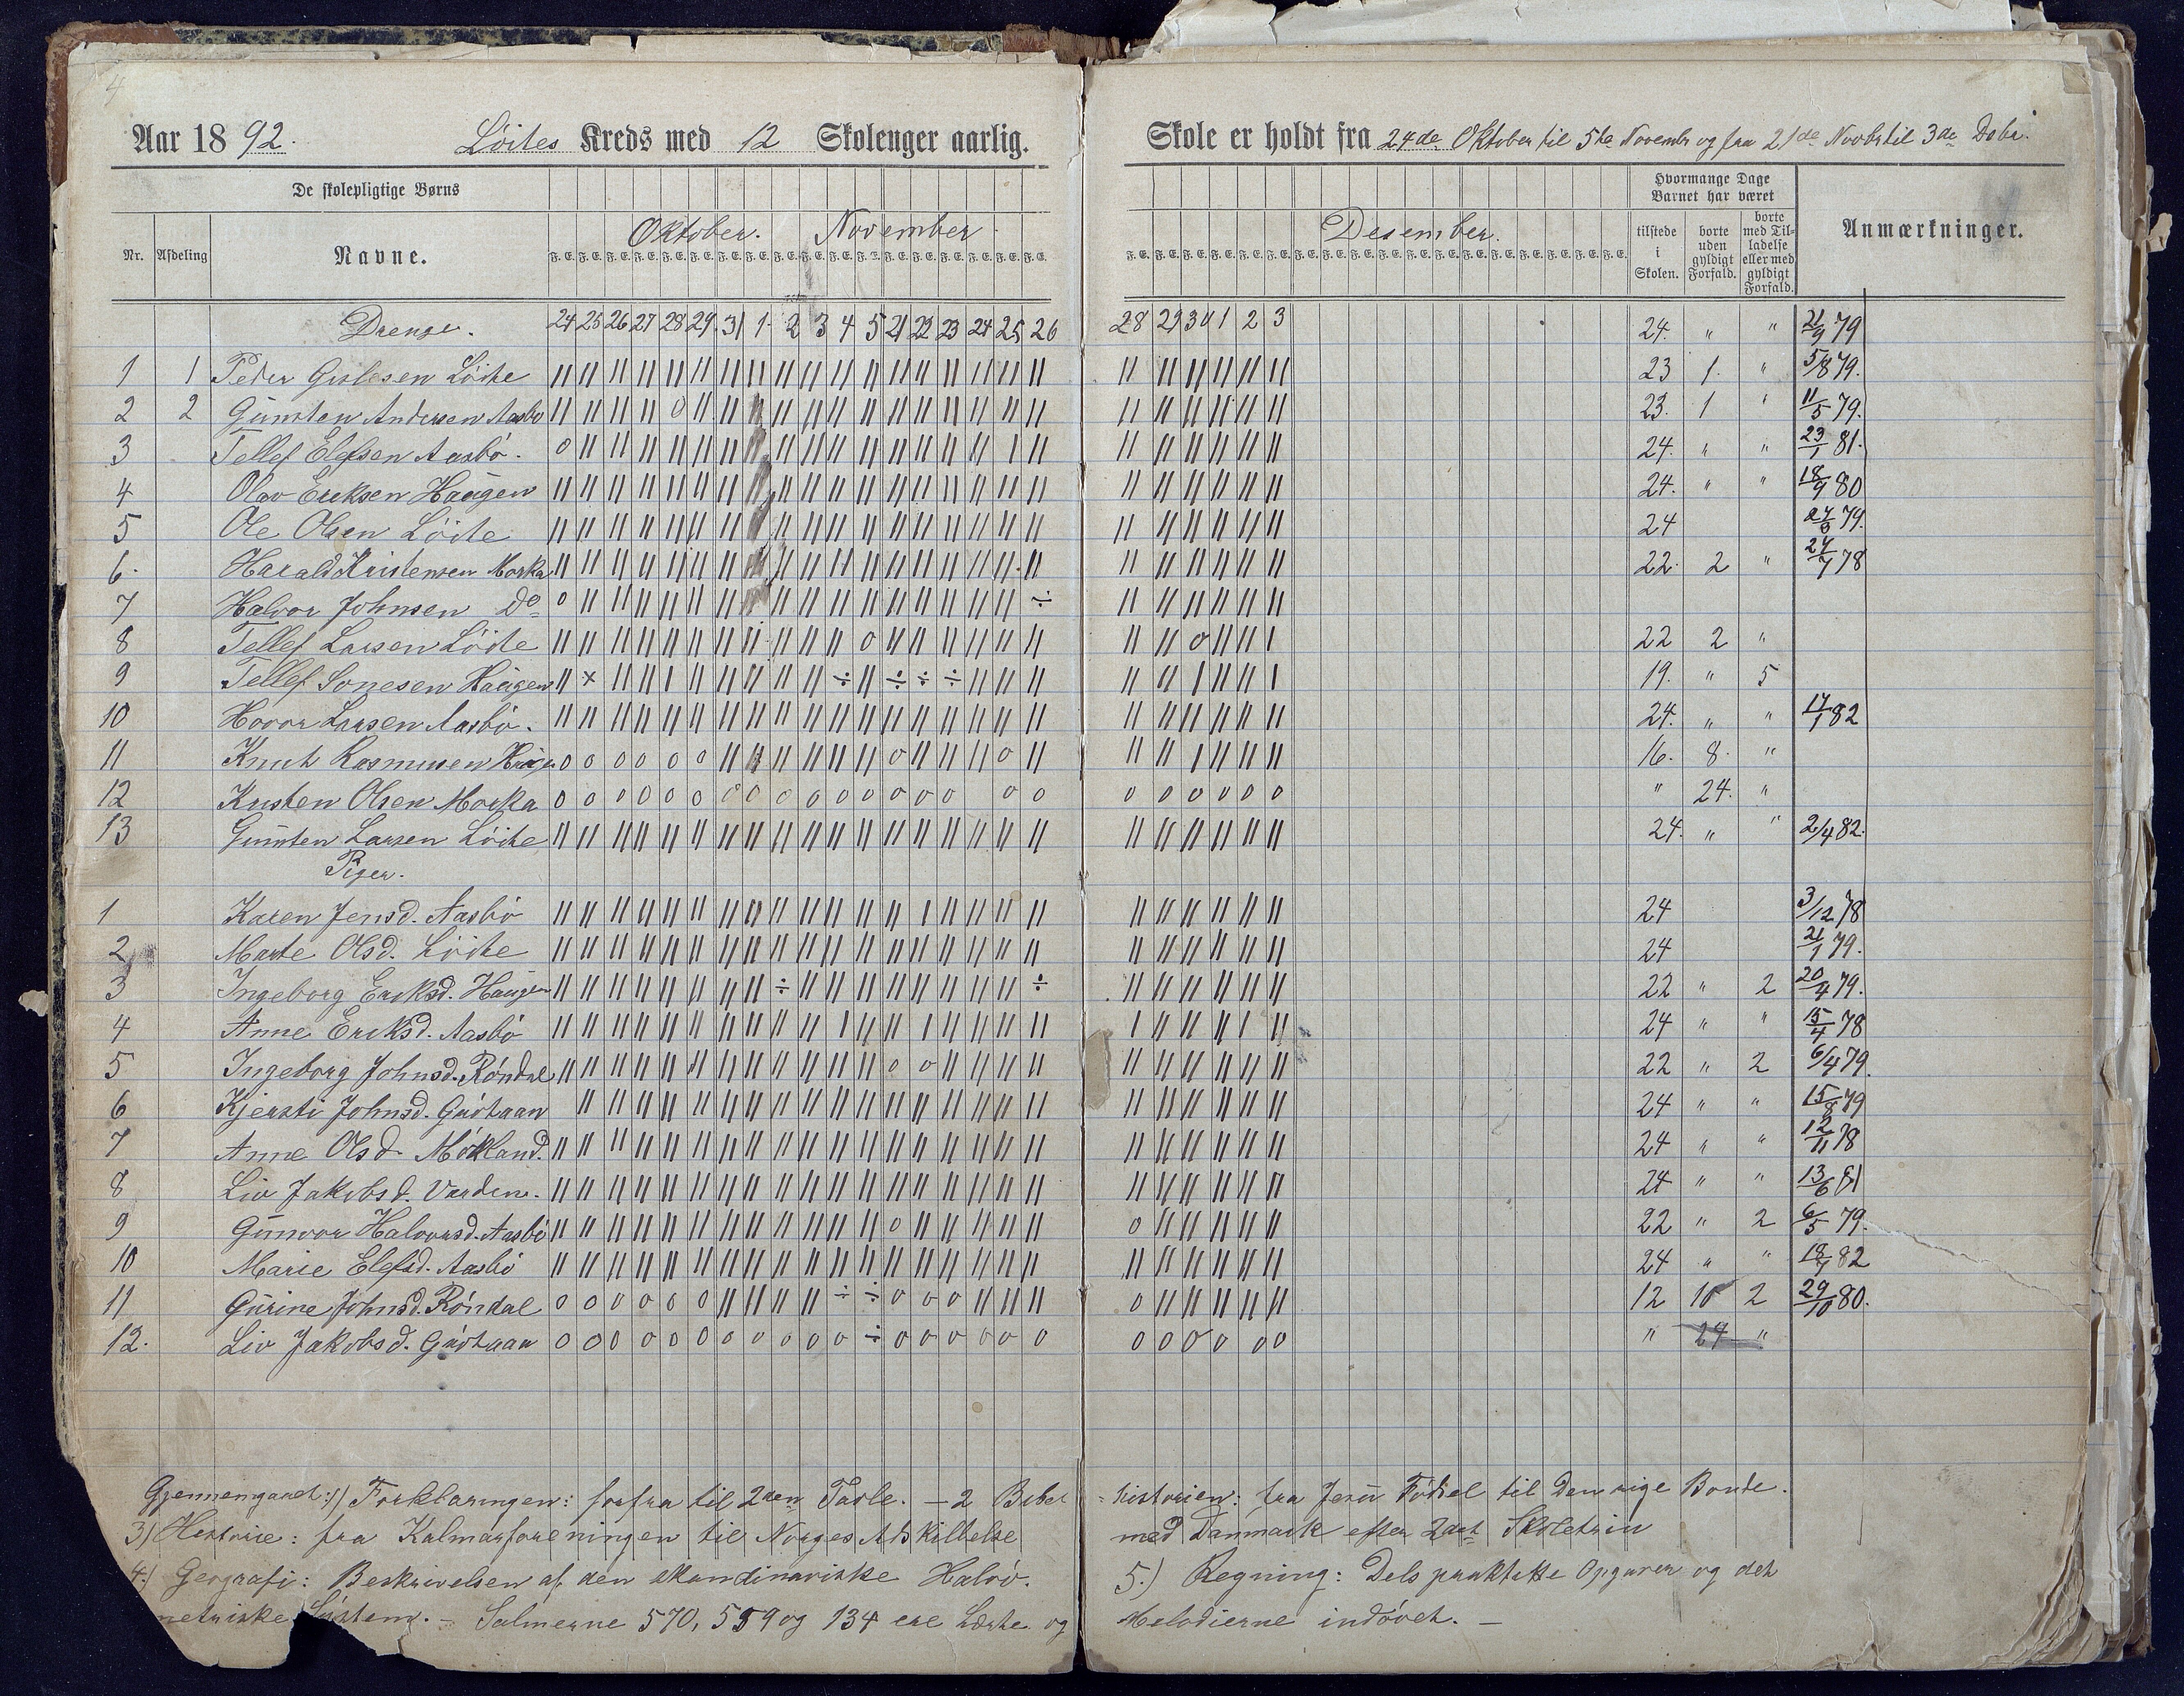 4
Aar 1892. Löites Kreds med 12 Skoleuger aarlig.
Skole er holdt fra 24de Oktober til 5te Novembr og fra 21de Novbr til 3die Debr.
De skolepligtige Børns
Hvormange Dage Barnet har været
Nr. Afdeling Navne. Oktober. November.
Desember. tilstede i Skolen. borte uden gyldigt Forfald. borte med Tilladelse eller med gyldigt Forfald. Anmærkninger.
F. E. F. E. F. E. F. E. F. E. F. E. F. E. F. E. F. E. F. E. F. E. F. E. F. E. F. E. F. E. F. E. F. E. F. E.
Drenge. 24 25 26 27 28 29 31 1 2 3 4 5 21 22 23 24 25 26 28 29 30 1 2 3 24. " " 21/9 79
1 1 Peder Gislesen Löite 23 1. " 5/8 79.
2 2 Gunsten Andersen Aasbö 23. 1 " 11/5 79.
3 Tellef Elefsen Aasbö. 24. " " 23/1 81.
4 Olav Eriksen Haugen 24. " " 18/9 80
5 Ole Olsen Löite 24 79.
6. Harald Kristensen Morka 22. 2 " 78
7 Halvor Johnsen Do
8 Tellef Larsen Löite 22 2 "
9 Tellef Sonesen Haugen 19. " 5
10 Hovor Larsen Aasbö. 24. " " 17/1 82
11 Knut Rasmusen Haugen 16. 8. "
12 Kristen Olsen Morka " 24. "
13 Gunsten Larsen Löite 24. " " 2/4 82.
Piger.
1 Karen Jensd. Aasbö 24 3/12 78
2 Marte Olsd. Löite 24 21/1 79.
3 Ingeborg Eriksd. Haugen 22 " 2 20/4 79.
4 Anne Eriksd. Aasbö 24 " " 15/4 78
5 Ingeborg Johnsd. Röndal 22 " 2 6/4 79.
6 Kjersti Johnsd. 24 " " 15/8 79
7 Anne Olsd. Mökland. 24 " " 12/11 78
8 Liv Jakobsd. Varden. 24 " " 13/6 81
9 Gunvor Halvorsd. Aasbö 22 " 2 6/5 79.
10 Marie Elefsd. Aasbö 24 " " 82
11 Gurine Johnsd. Röndal 12 10 2 29/10 80.
12. Liv Jakobsd. " 24 "
Gjennemgaaet: 1) Forklaringen: forfra til 2den Tavle. – 2 Bibel
historien: fra Jesu Födsel til Den rige Bonde.
3) Historie: fra Kalmarforeningen til Norges Adskillelse
med Danmark efter 2det Skoletrin
4) Geografi: Beskrivelsen af den skandinaviske Halvö.
5.) Regning: Dels praktiske Opgaver og det
metriske System. – Salmerne 570, 559 og 134 ere Lærte og
Melodierne indövet. –